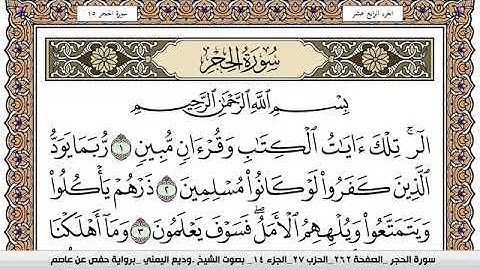 الجزء الرابع عشر
سورة الحجر ١٥
سُورَةُ الحِجْرِ
بِسْمِ اللَّهِ الرَّحْمَٰنِ الرَّحِيمِ
الٓر ۚ تِلْكَ ءَايَٰتُ ٱلْكِتَٰبِ وَقُرْءَانٍ مُّبِينٍ ١ رُّبَمَا يَوَدُّ
ٱلَّذِينَ كَفَرُوا۟ لَوْ كَانُوا۟ مُسْلِمِينَ ٢ ذَرْهُمْ يَأْكُلُوا۟
وَيَتَمَتَّعُوا۟ وَيُلْهِهِمُ ٱلْأَمَلُ ۖ فَسَوْفَ يَعْلَمُونَ ٣ وَمَآ أَهْلَكْنَا
سورة الحجر _الصفحة ٢٦٢_ الحزب ٢٧_ الجزء ١٤_ بصوت الشيخ .وديع اليمني _برواية حفص عن عاصم